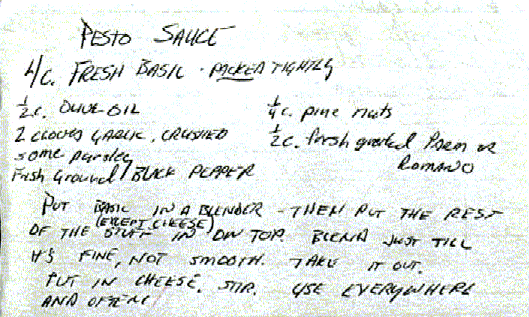 PESTO SAUCE
4/c. FRESH BASIC - PACKED TIGHTLY
½ c. OLIVE OIL
¼ c. pine nuts
2 CLOVES GARLIC, CRUSHED
½ c. fresh grated PARM or
ROMANO
some parsley
Fresh Ground BLACK PEPPER
PUT BASIC IN A BLENDER - THEN PUT THE REST
(EXCEPT CHEESE)
OF THE STUFF IN ON TOP. BLEND JUST TILL
IT'S FINE, NOT SMOOTH. TAKE IT OUT.
PUT IN CHEESE, STIR. USE EVERYWHERE
AND OFTEN!